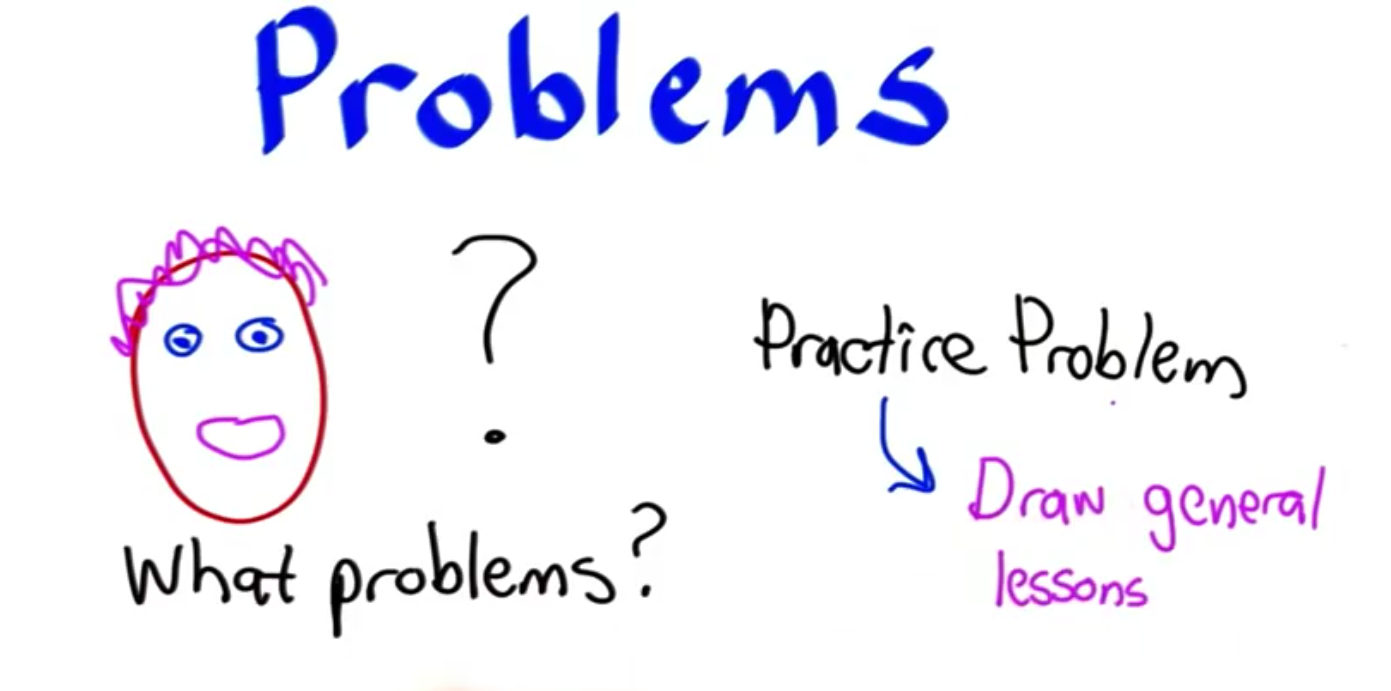 Problems
?
What problems?
Practice Problem
Draw general
lessons